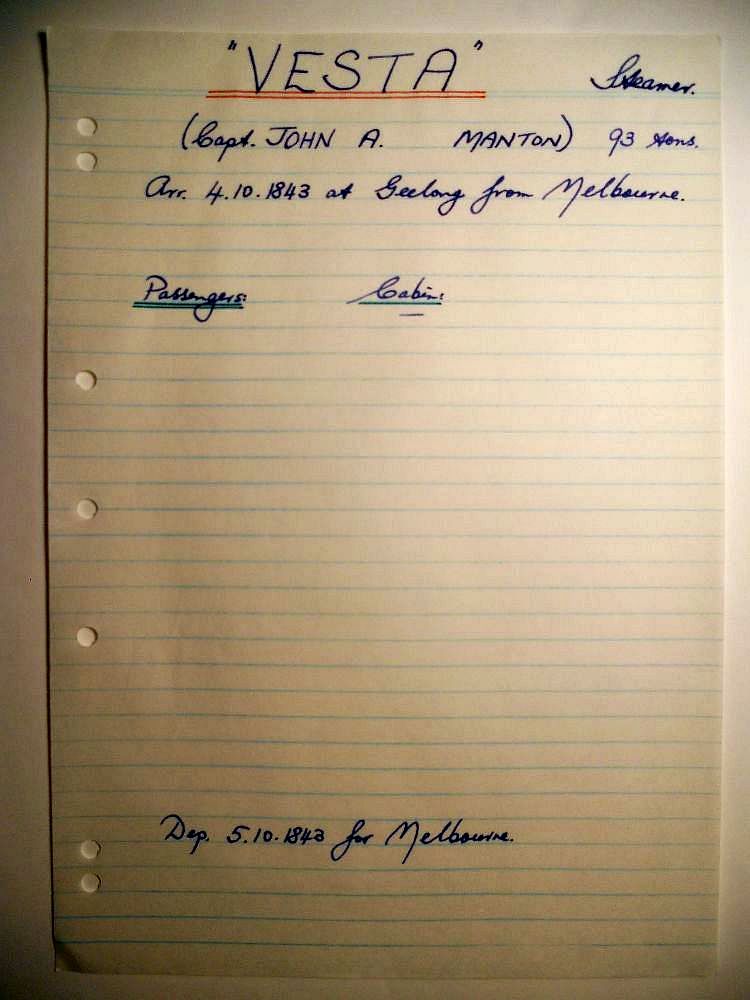 "VESTA" Steamer.
(Capt. JOHN A. MANTON) 93 tons.
Arr. 4.10.1843 at Geelong from Melbourne.
Passengers: Cabin:
Dep. 5.10.1843 for Melbourne.